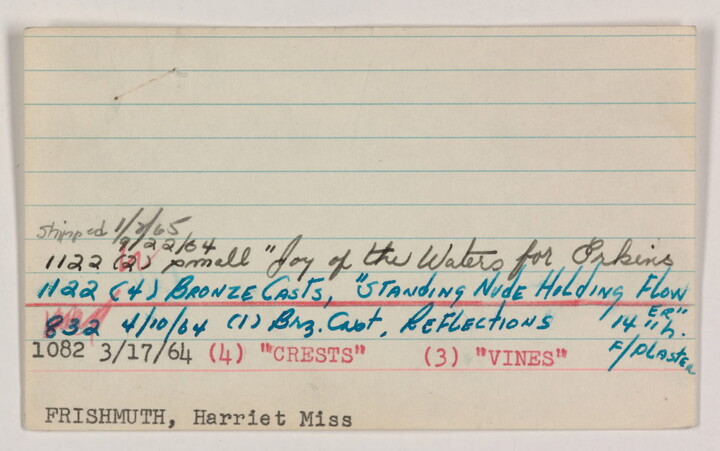 Shipped 1/2/65
9/22/64
1122 (2) small "Joy of the Waters for Erkins
1122 (4) BRONZE CASTS, "STANDING NUDE HOLDING FLOW
ER"
832 4/10/64 (1) BRZ. CAST, REFLECTIONS 14"h.
F/PLASTER
1082 3/17/64 (4) "CRESTS" (3) "VINES"
FRISHMUTH, Harriet Miss